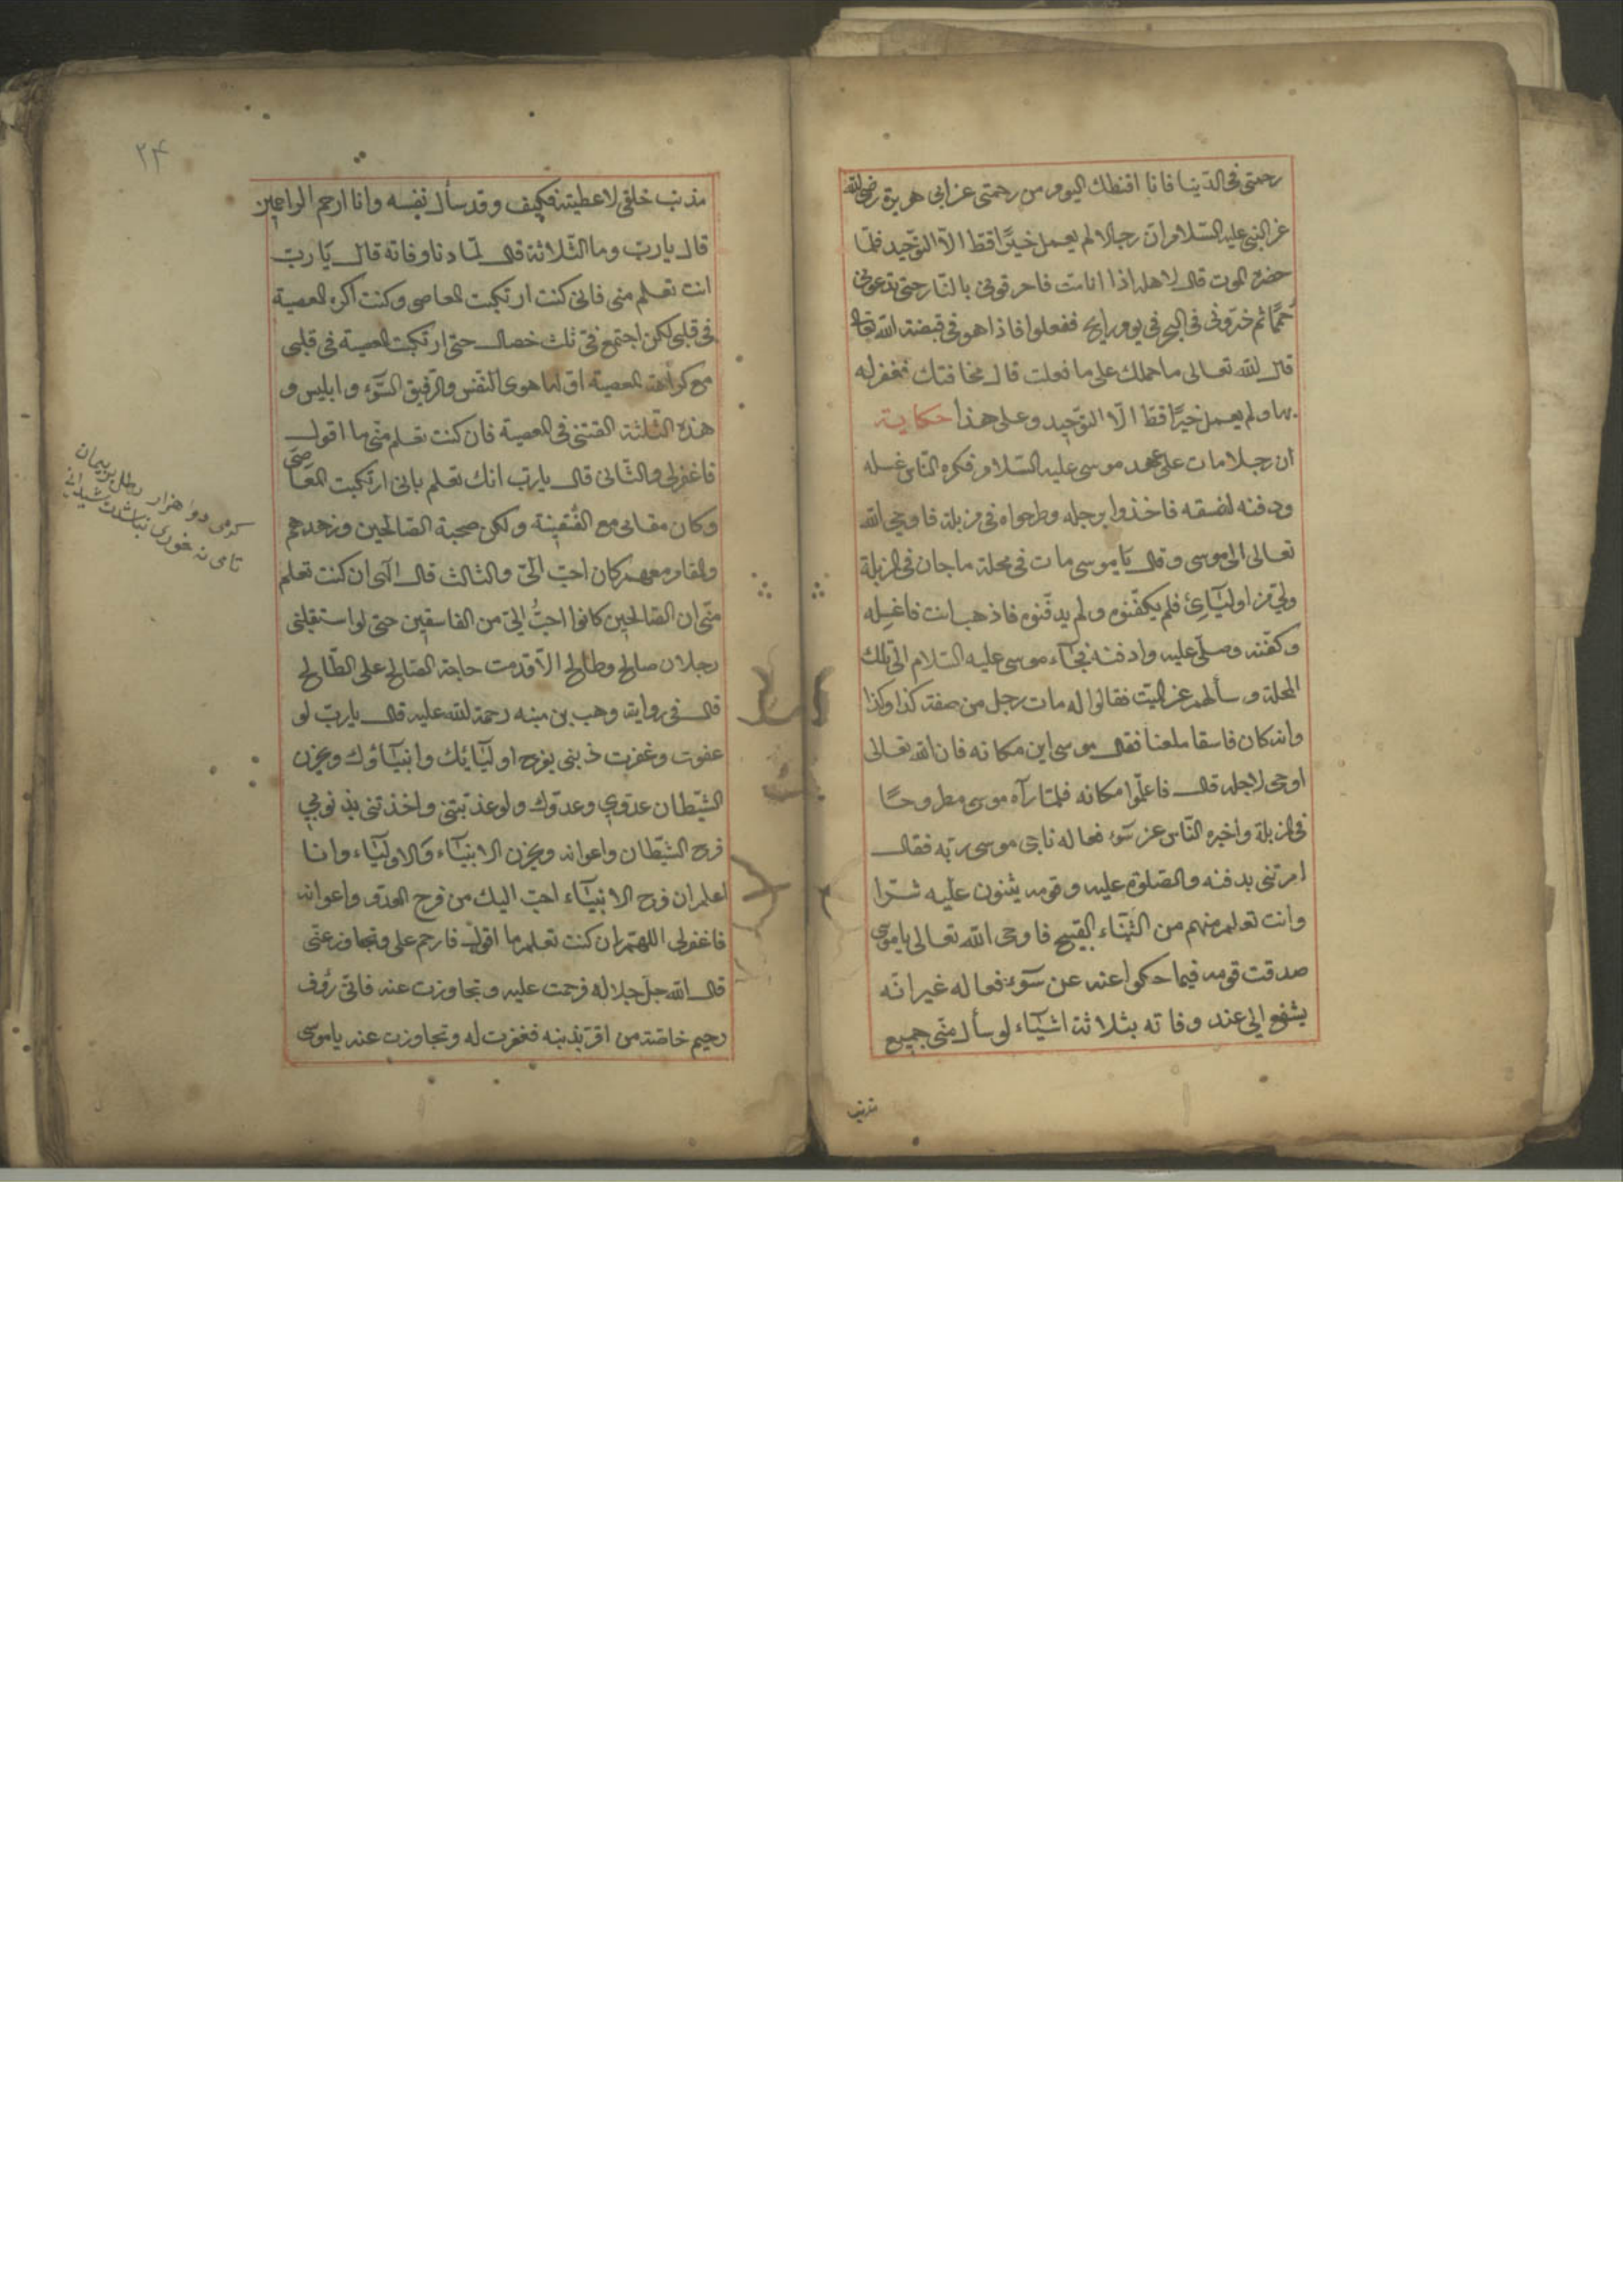 رحمتى فى الدّنيا فانا اقنطك اليوم من رحمتى عن ابى هريرة رضى الله
عن النبى عليه السّلام انّ رجالا لم يعمل خيرًا قطّ الّا التوحيد فلمّا
حضره الموت قال لاهله اذا انا مت فاحرقونى بالنّار حتى تدعونى
حُممًا ثم ذرّونى فى البحر فى يوم رايح ففعلوا فاذا هو فى قبضة الله تعالى
قال الله تعالى ما حملك على ما فعلت قال مخافتك فغفر له
بها ولم يعمل خيرًا قطّ الّا التوحيد وعلى هذا حكاية
ان رجلا مات على عهد موسى عليه السّلام فكره النّاس غسله
ودفنه لفسقه فاخذوا برجله وطرحواه فى مزبلة فاوحى الله
تعالى الى موسى وقال يا موسى مات فى محلة ماجان فى المزبلة
ولىّ من اوليآئ فلم يكفّنوه ولم يدفّنوه فاذهب انت فاغسله
وكفّنه وصلّى عليه وادفنه فجآء موسى عليه السّلام الى تلك
المحلة وسألهم عن الميّت فقالوا له مات رجل من صفته كذا وكذا
وانه كان فاسقا ملعنا فقال موسى اين مكانه فان الله تعالى
اوحى لاجله قال فاعلموا مكانه فلمّا رآه موسى مطروحًا
فى المزبلة واخبره النّاس عن سوء فعاله ناجى موسى ربّه فقال
امرتنى بدفنه والصّلوة عليه وقومه يثنون عليه شرّا
وانت تعلم منهم من الثّناء القبيح فاوحى الله تعالى يا موسى
صدقت قومه فيما حكوا عنه عن سوء فعاله غير انّه
يشفع الى عند وفاته بثلاثة اشيآء لو سأل منّى جميع
مذنب
٢٤
مذنب خلقى لاعطيته فكيف وقد سأل نفسه وانا ارحم الراحمين
قال يا ربّ وما الثّلاثة قال لمّا دنا وفاته قال يا ربّ
انت تعلم منى فانى كنت ارتكبت المعاصى وكنت اكره المعصية
فى قلبى لكن اجتمع فىّ ثلث خصال حتى ارتكبت المعصية فى قلبى
مع كراهة المعصية اوّلها هوى النّفس والرّفيق السّوء وابليس و
هذه الثّلثة القتنى فى المعصية فان كنت تعلم منّى ما اقول
فاغفرلى والثّانى قال يا ربّ انك تعلم بانى ارتكبت المعاصى
وكان مقامى مع الفسقة ولكن صحبة الصّالحين وزهدهم
والمقام معهم كان احبّ الىّ والثالث قال الهى ان كنت تعلم
منّى ان الصّالحين كانوا احبُّ الىّ من الفاسقين حتى لو استقبلنى
رجلان صالح وطالح الّا قدمت حاجة الصّالح على الطّالح
قال فى رواية وهب بن منبه رحمة الله عليه قال يا ربّ لو
عفوت وغفرت ذنبى يفرح اوليآئك وانبيآؤك ويحزن
الشّيطان عدوى وعدوّك ولو عذبتنى واخذتنى بذنوبى
فرح الشّيطان واعوانه ويحزن الانبيآء والاوليآء وانا
اعلم ان فرح الانبيآء احبّ اليك من فرح العدوّ واعوانه
فاغفرلى اللهمّ ان كنت تعلم ما اقول فارحم على وتجاوز عنّى
قال الله جلّ جلاله فرحمت عليه وتجاوزت عنه فانّى رؤف
رحيم خاصّة من اقرّ بذنبه فغفرت له وتجاوزت عنه يا موسى
دو هزار رطل
تا مى نه خورى